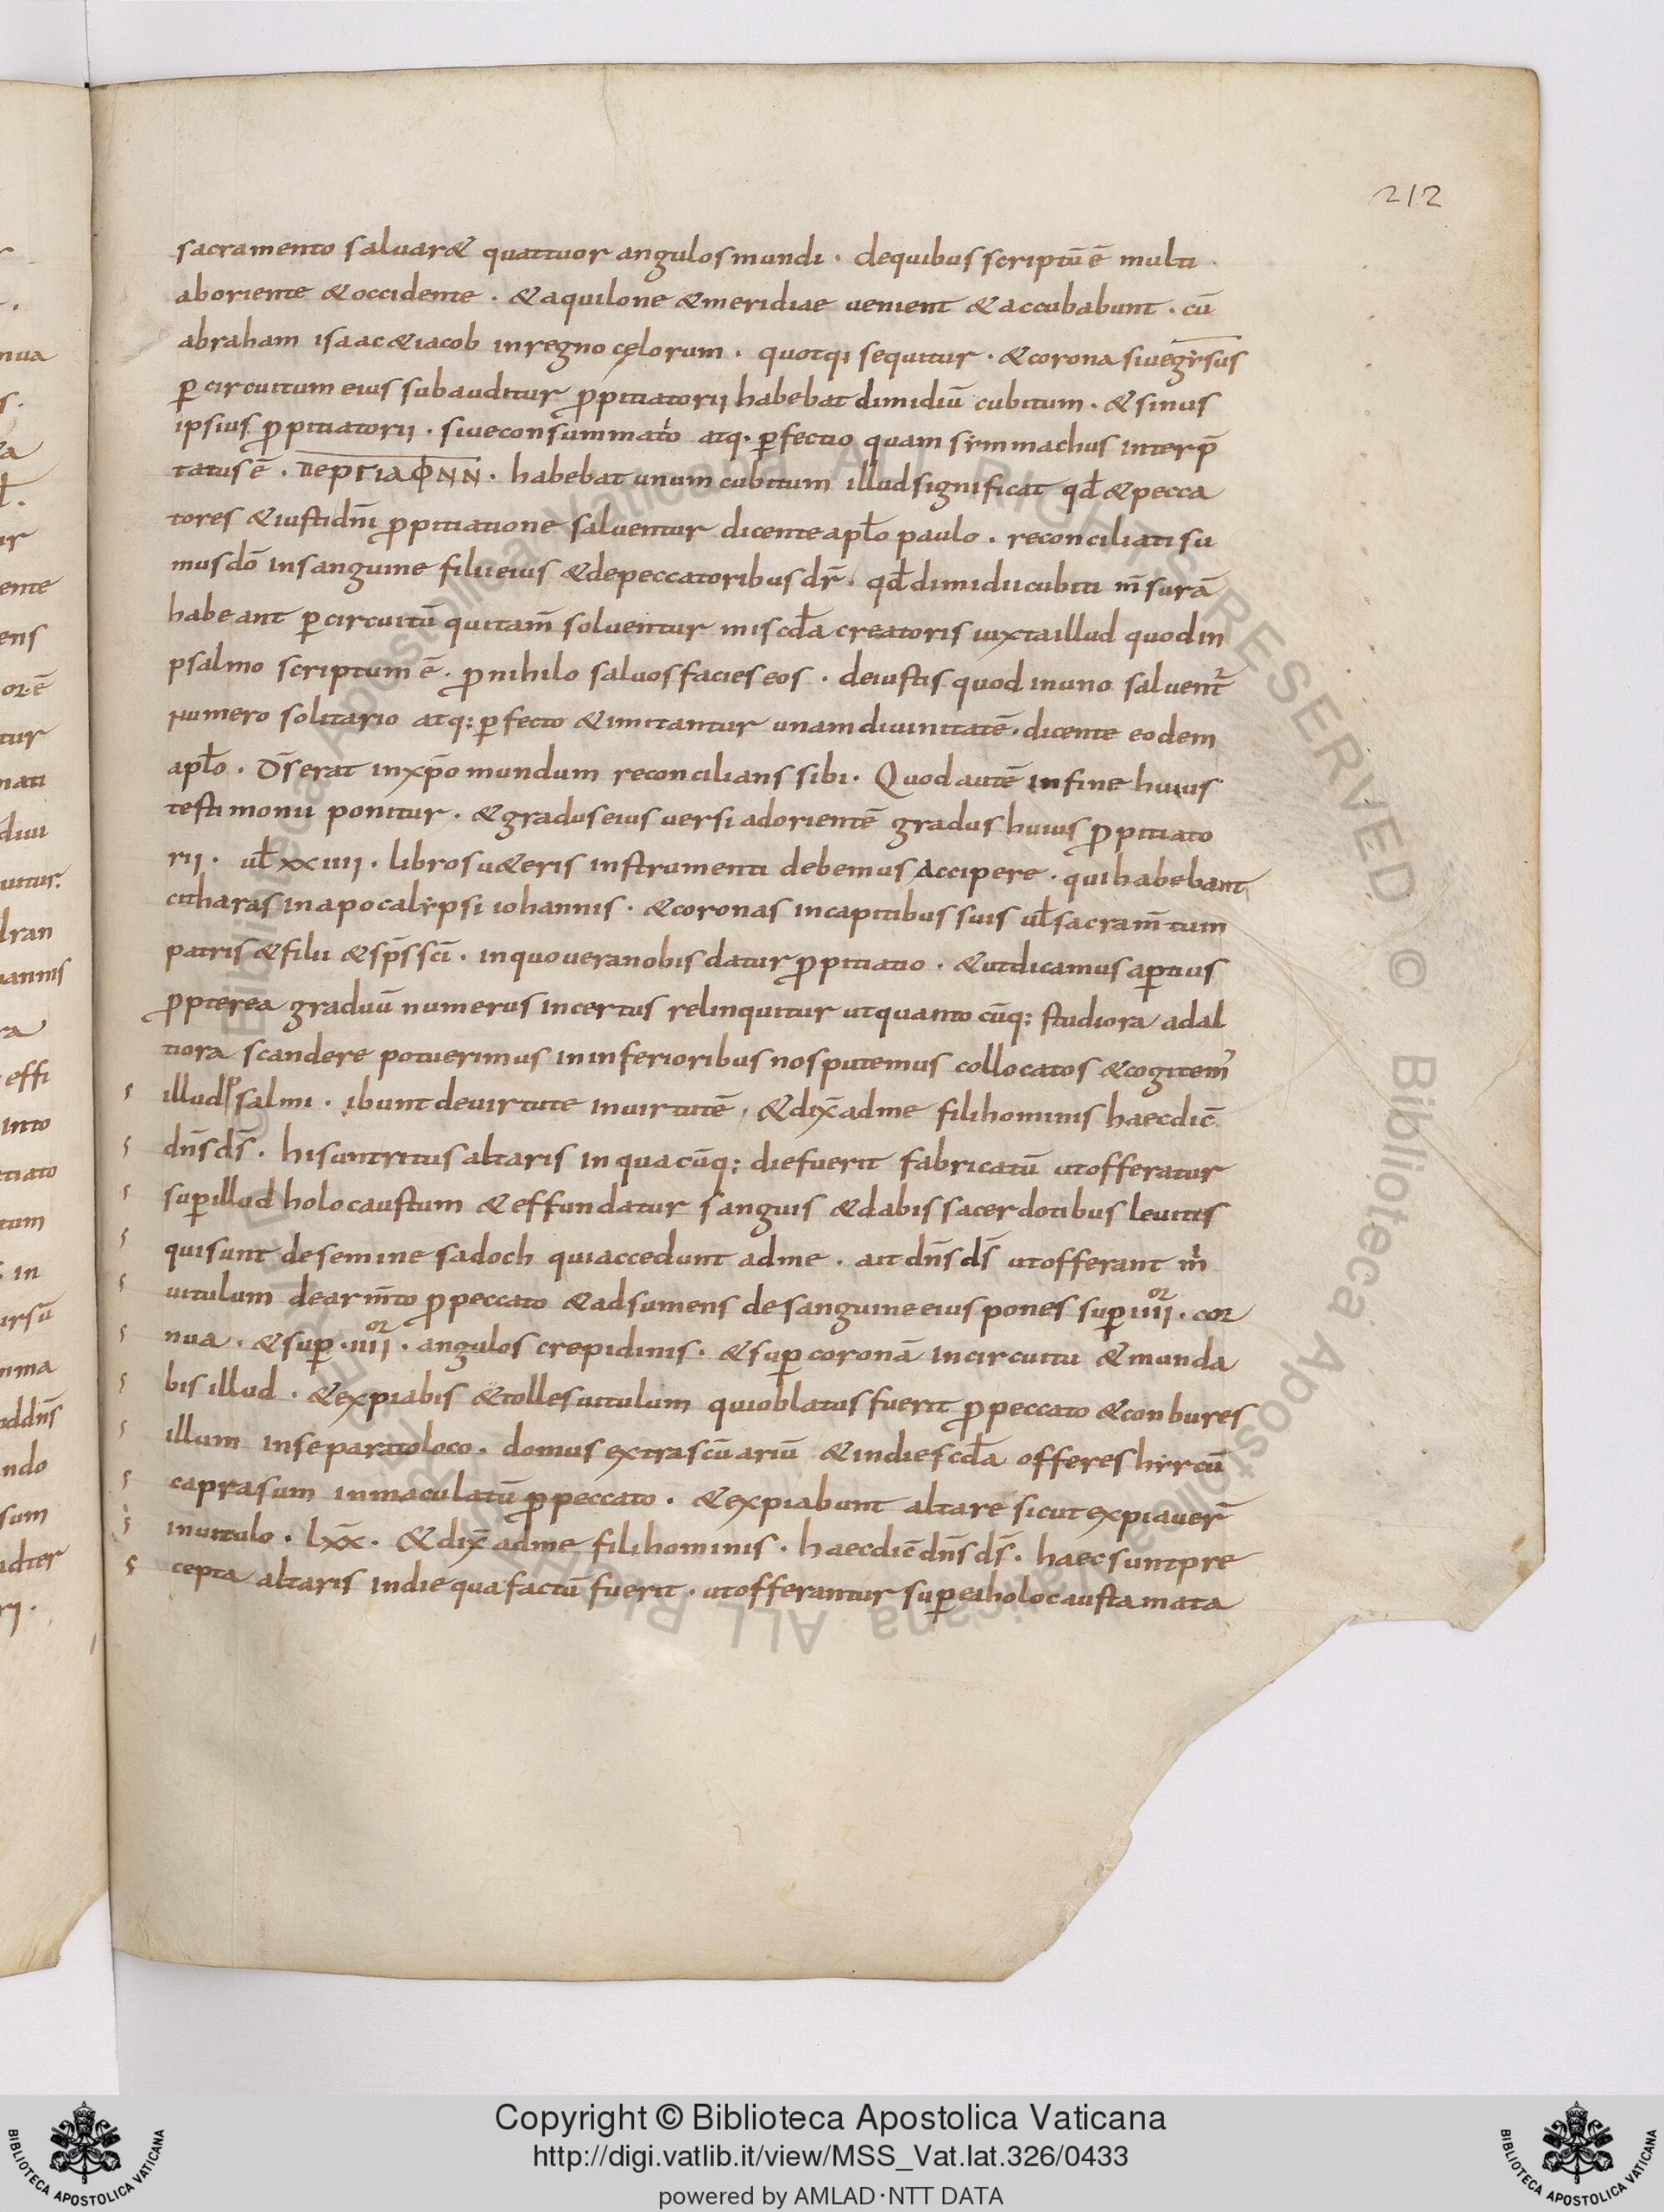 212
sacramento saluar& quattuor angulos mundi · de quibus scriptū ē multi
ab oriente & occidente · & aquilone & meridiae uenient & accubabunt · cū
abraham isaac & iacob in regno cęlorum · quotq; sequitur · & corona siue gẏrsus
ꝑ circuitum eius subauditur ꝓpitiatorii habebat dimidiū cubitum · & sinus
ipsius ꝓpitiatorii · siue consummatio atq· ꝑfectio quam sẏmmachus interp̄
tatus ē · habebat unum cubitum illud significat qđ & pecca
tores & iusti dn̄i ꝓpitiatione saluentur dicente apƚo paulo · reconciliati su
mus dō in sanguine filii eius & de peccatoribus dr̄ · qđ dimidii cubiti m̄surā
habeant ꝑ circuitū qui tam̄ soluentur mis̄cđa creatoris iuxta illud quod in
psalmo scriptum ē · ꝓ nihilo saluos facies eos · de iustis quod in uno saluent̄
numero solitario atq: ꝑfecto & imitantur unam diuinitatē · dicente eodem
apƚo · Ds̄ erat in xp̄o mundum reconcilians sibi · Quod autē in fine huius
testimonii ponitur · & gradus eius uersi ad orientē gradus huius ꝓpitiato
rii · uƚ xxiiii · libros u&eris instrumenti debemus accipere · qui habebant
citharas in apocalẏpsi iohannis · & coronas in capitibus suis uƚ sacram̄tum
patris & filii & sp̄s sc̄i · in quo uera nobis datur ꝓpitiatio · & ut dicamus aꝑtius
ꝓpterea graduū numerus incertus relinquitur ut quanto cūq: studiora ad al
tiora scandere potuerimus in inferioribus nos putemus collocatos & cogitem᾽
illud psalmi · ibunt de uirtute in uirtutē · & dix̄ ad me fili hominis haec dic̄
dn̄s ds̄ · hi sunt ritus altaris in quacūq: die fuerit fabricatū ut offeratur
suꝑ illud holocaustum & effundatur sanguis & dabis sacerdotibus leuitis
qui sunt de semine sadoch qui accedunt ad me · ait dn̄s ds̄ ut offerant m̄
uitulum de arm̄to ꝓ peccato & adsumens de sanguine eius pones suꝑ iiii or · cor
nua · & suꝑ · iiii or · angulos crepidinis · & suꝑ coronā in circuitu & munda
bis illud · & expiabis & tolles uitulum qui oblatus fuerit ꝓ peccato & conbures
illum in separato loco · domus extra sc̄uariū & in die scđa offeres hẏrcū
caprasum inmaculatū ꝓ peccato · & expiabunt altare sicut expiauer̄
in uitulo · lxx̄ · & dix̄ ad me fili hominis · haec dic̄ dn̄s ds̄ · haec sunt pre
cepta altaris in die qua factū fuerit · ut offerantur suꝑ ea holocaustamata
Copyright © Biblioteca Apostolica Vaticana
http://digi.vatlib.it/view/MSS_Vat.lat.326/0433
powered by AMLAD·NTT DATA
BIBLIOTECA APOSTOLICA VATICANA
BIBLIOTECA APOSTOLICA VATICANA